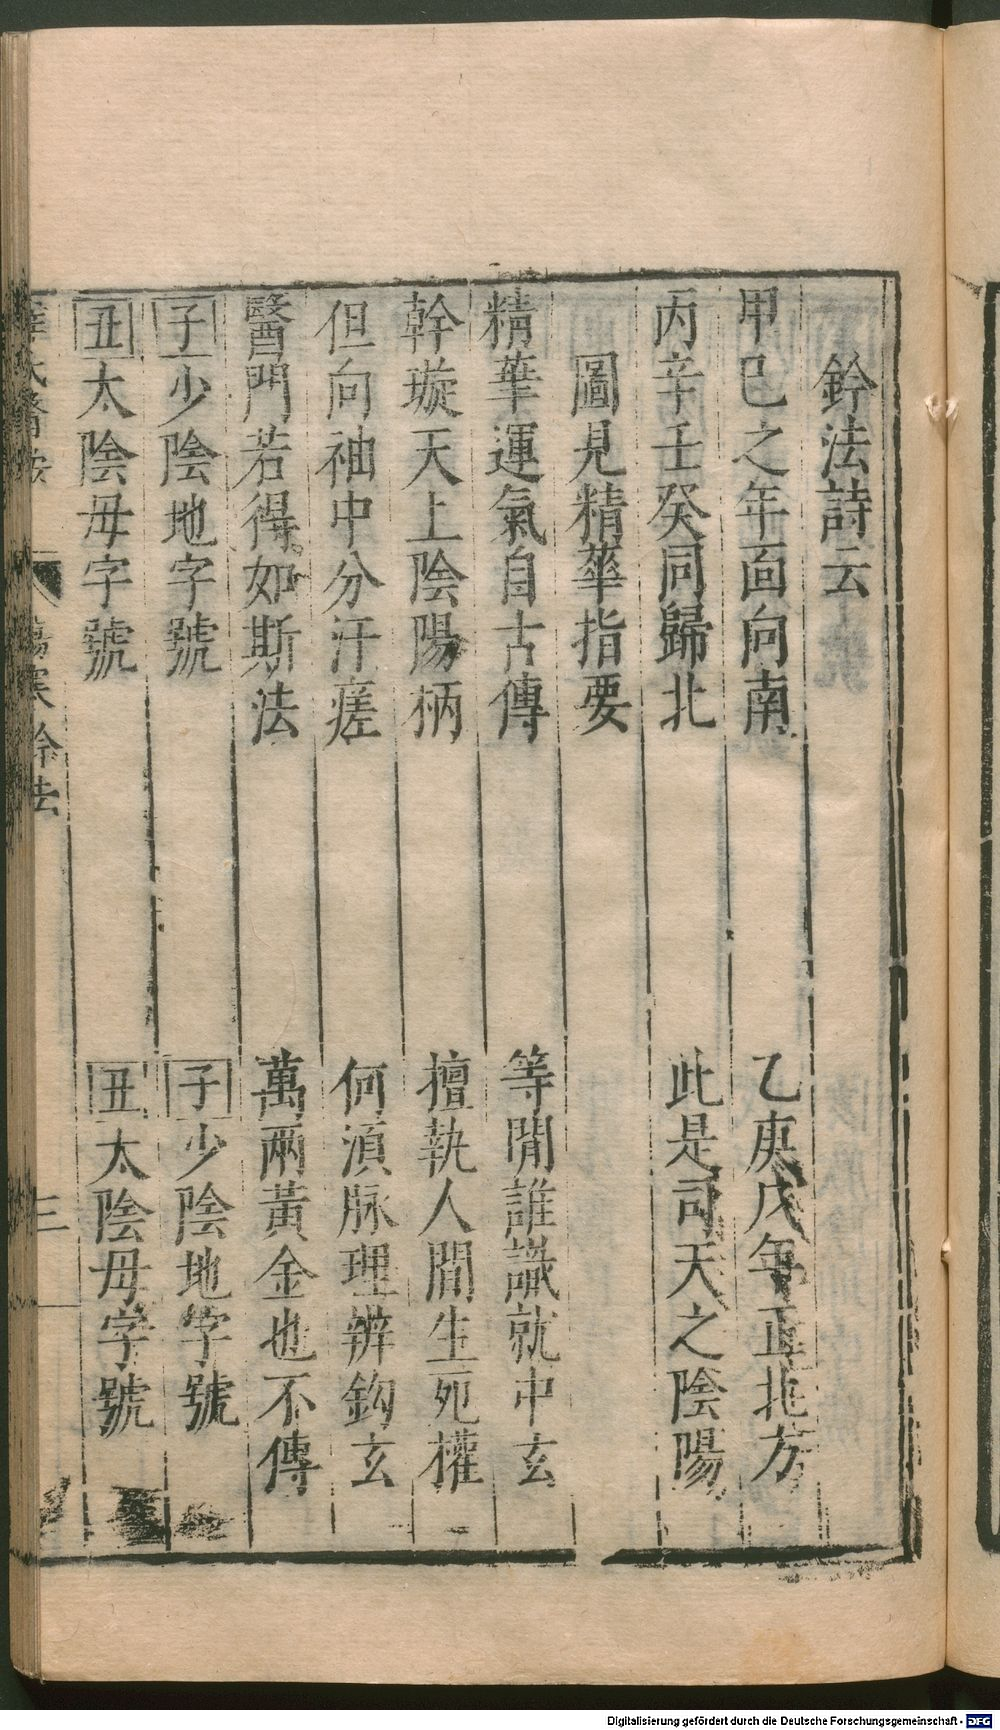 鈐法詩云
甲巳之年面向南　乙庚戊年正北方
丙辛壬癸同歸北　此是司天之陰陽
圖見精華指要
精華運氣自古傳　等閒誰識就中玄
幹璇天上陰陽柄　擅執人間生死權
但向袖中分汗瘥　何湏脉理辨鈎玄
醫門若得如斯法　萬兩黃金也不傳
子少陰地字號　子少陰地字號
丑太陰母字號　丑太陰母字號
薛氏醫按　傷寒鈐法　三
Digitalisierung gefördert durch die Deutsche Forschungsgemeinschaft - DFG